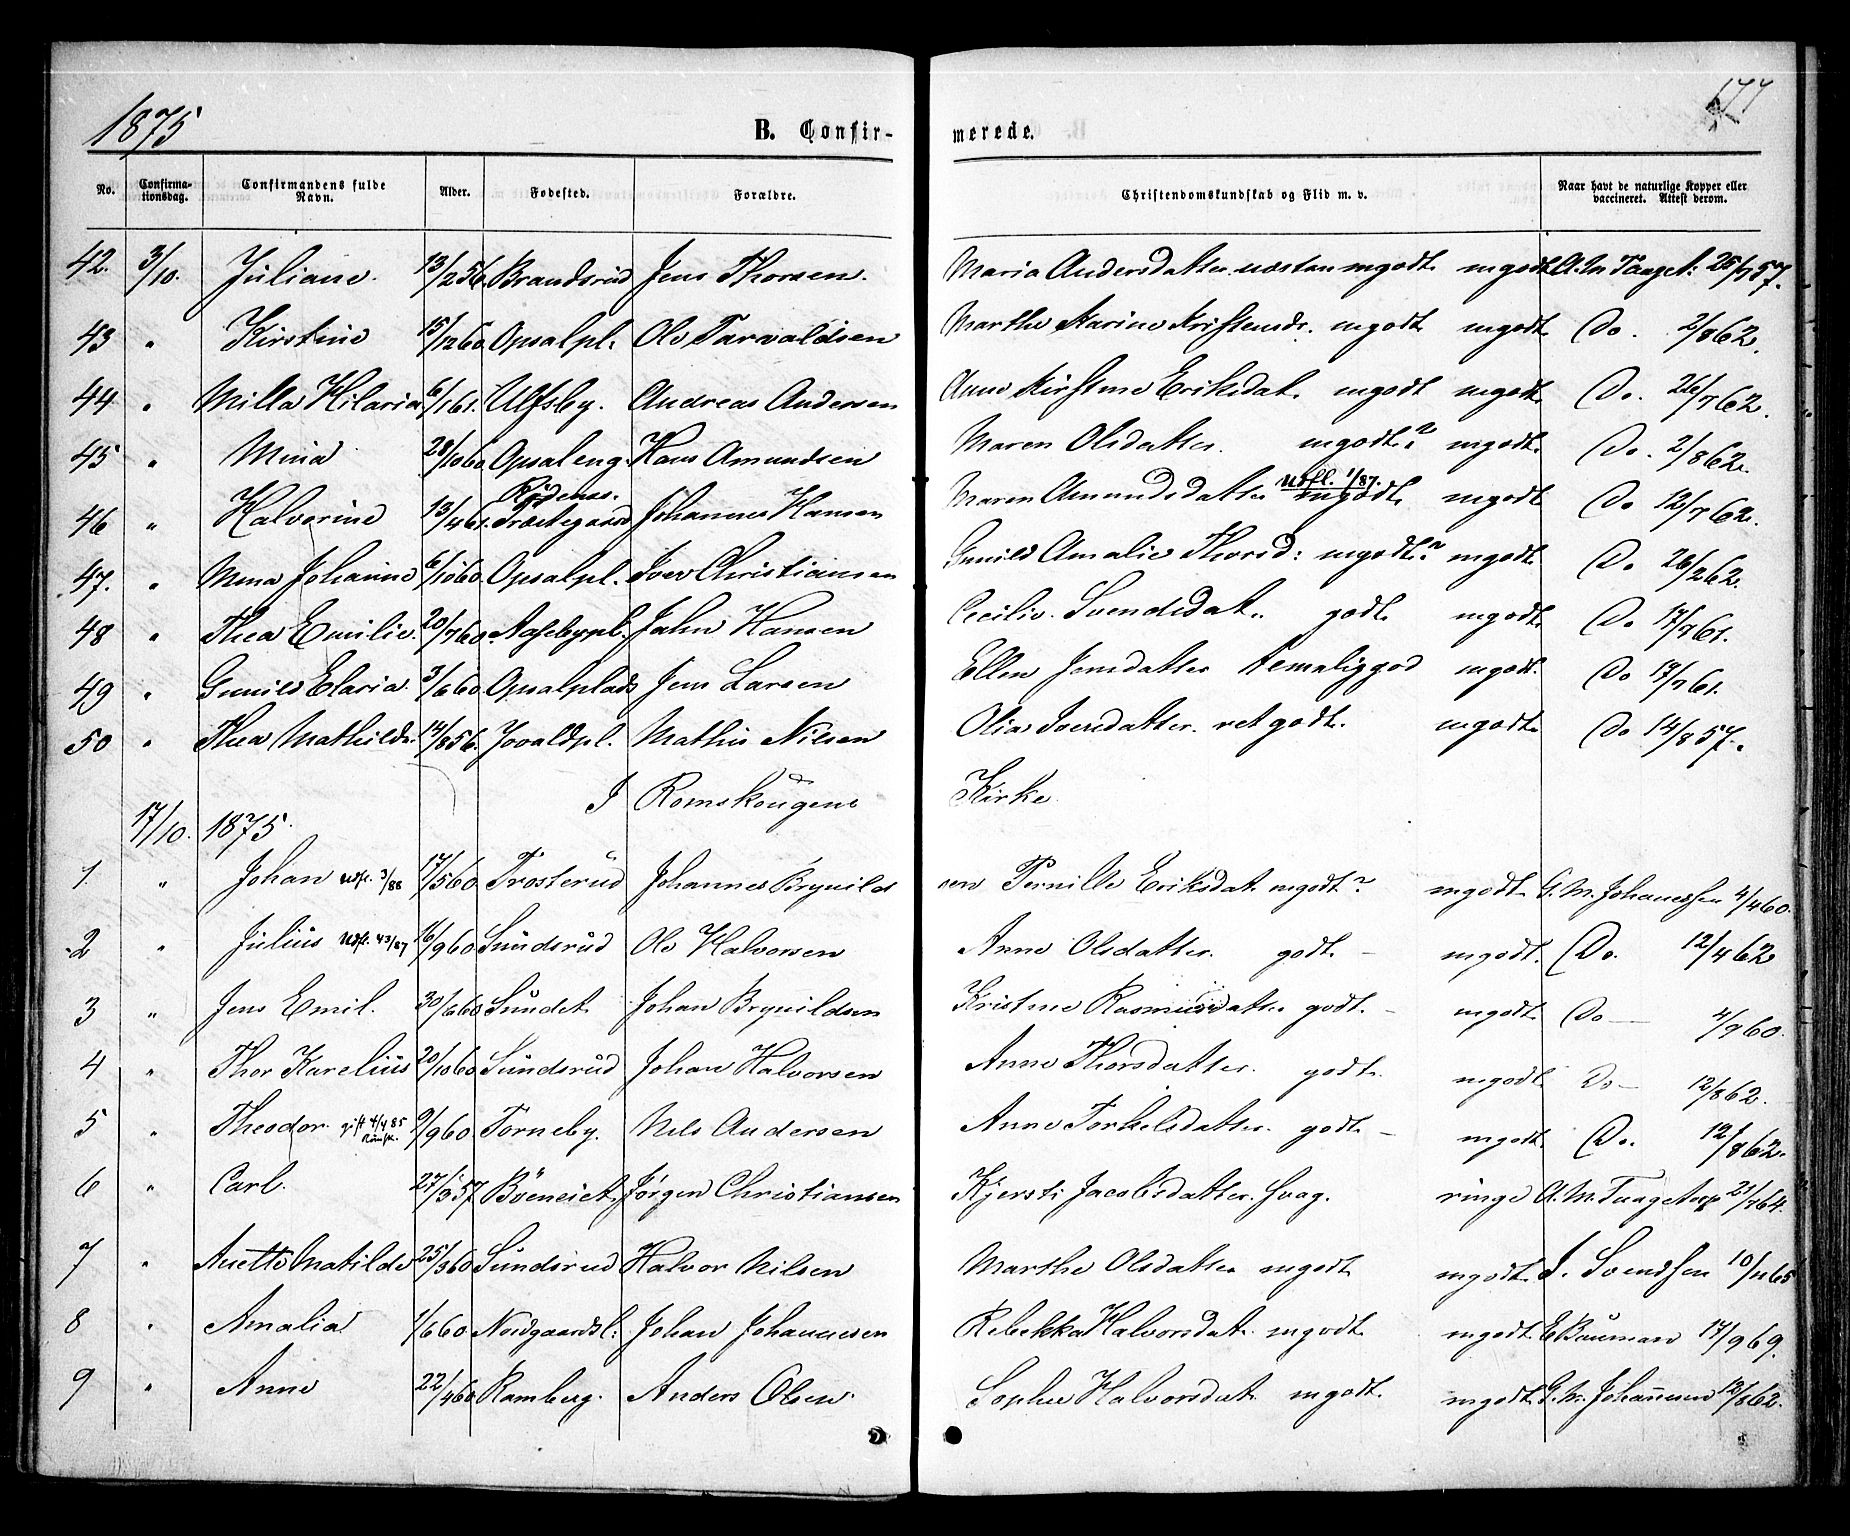 1875
177
B. Confir-
merede.
No.
Confirma-
tionsdag.
Confirmandens fulde
Navn.
Alder.
Fødested.
Forældre.
Christendomskundskab og Flid m. v.
Naar havt de naturlige Kopper eller
vaccineret. Attest derom.
42. 3/10. Juliane. 13/2 56. Brandsrud Jens Thorsen. Maria Andersdatter. næsten mgodt mgodt A. M. Taaget: 26/7 57.
43 " Kirstine 15/12 60. Opsalpl. Ole Tarvaldsen Marthe Karine Kristensdr. mgodt mgodt Do. 2/8 62.
44 " Milla Hilaria 6/1 61. Ulfsby. Andreas Andersen Anne Kirstine Eriksdat. mgodt mgodt. Do. 26/7 62.
45 " Mina 28/10 60. Opsaleng. Hans Amundsen Maren Olsdatter. mgodt? mgodt. Do. 2/8 62.
Rödenæs.
Udfl. 1/87.
46 " Halvorine 13/4 61. Præstegaard Johannes Hansen Maren Amundsdatter mgodt mgodt Do 12/7 62.
47. " Mina Johanne 6/10 60. Opsalpl. Iver Christiansen Gunild Amalie Thorsd: mgodt? mgodt. Do 26/2 62.
48 " Thea Emilie. 20/7 60. Aasebypl. John Hansen Cecilie. Svendsdat. godt. mgodt Do 17/7 61.
49 " Gunild Elaria. 3/6 60. Opsalplads Jens Larsen Ellen Jensdatter temaliggod mgodt. Do 17/7 61.
50 " Thea Mathilde. 14/8 56. Jovaldpl. Mathis Nilsen Olia Iversdatter. ret godt. mgodt. Do 14/8 57.
I Romskougens Kirke
17/10. 1875.
1. " Johan udfl. 3/88 17/5 60. Trosterud Johannes Brynilds en Pernille Eriksdat. mgodt? mgodt. G. M. Johanessen 4/4 60.
2 " Julius udfl. 43/87 16/9 60 Sundsrud Ole Halvorsen Anne Olsdatter. godt. - mgodt. Do. 12/4 62
3 " Jens Emil. 30/6 60 Sundet Johan Brynildsen Kristine Rasmusdatter godt. - mgodt. Do — 4/9 60.
4 " Thor Karelius 20/10 60 Sundsrud Johan Halvorsen Anne Thorsdatter. godt. mgodt Do - 12/8 62.
5 " Theodor. gift 4/4 85 9/9 60. Torneby. Nils Andersen Anne Torkelsdatter. godt - mgodt. Do. 12/8 62.
Römsk.
6 " Carl. 27/9 57. Böeneiet. Jörgen Christiansen Kjersti Jacobsdatter. svag. ringe A. M. Taaget 21/7 64.
7 " Anette Matilde 25/3 60 Sundsrud Halvor Nilsen Marthe Olsdatter mgodt mgodt. J. Svendsen 10/11 65
8 " Amalia 1/6 60. Nordgaardsl: Johan Johannesen Rebekka Halvorsdat. mgodt mgodt. E Bauman 17/9 69.
9 " Anne 22/4 60 Ramberg. Anders Olsen. Sophie Halvorsdat. mgodt. mgodt. G. M. Johannesen 12/8 62.